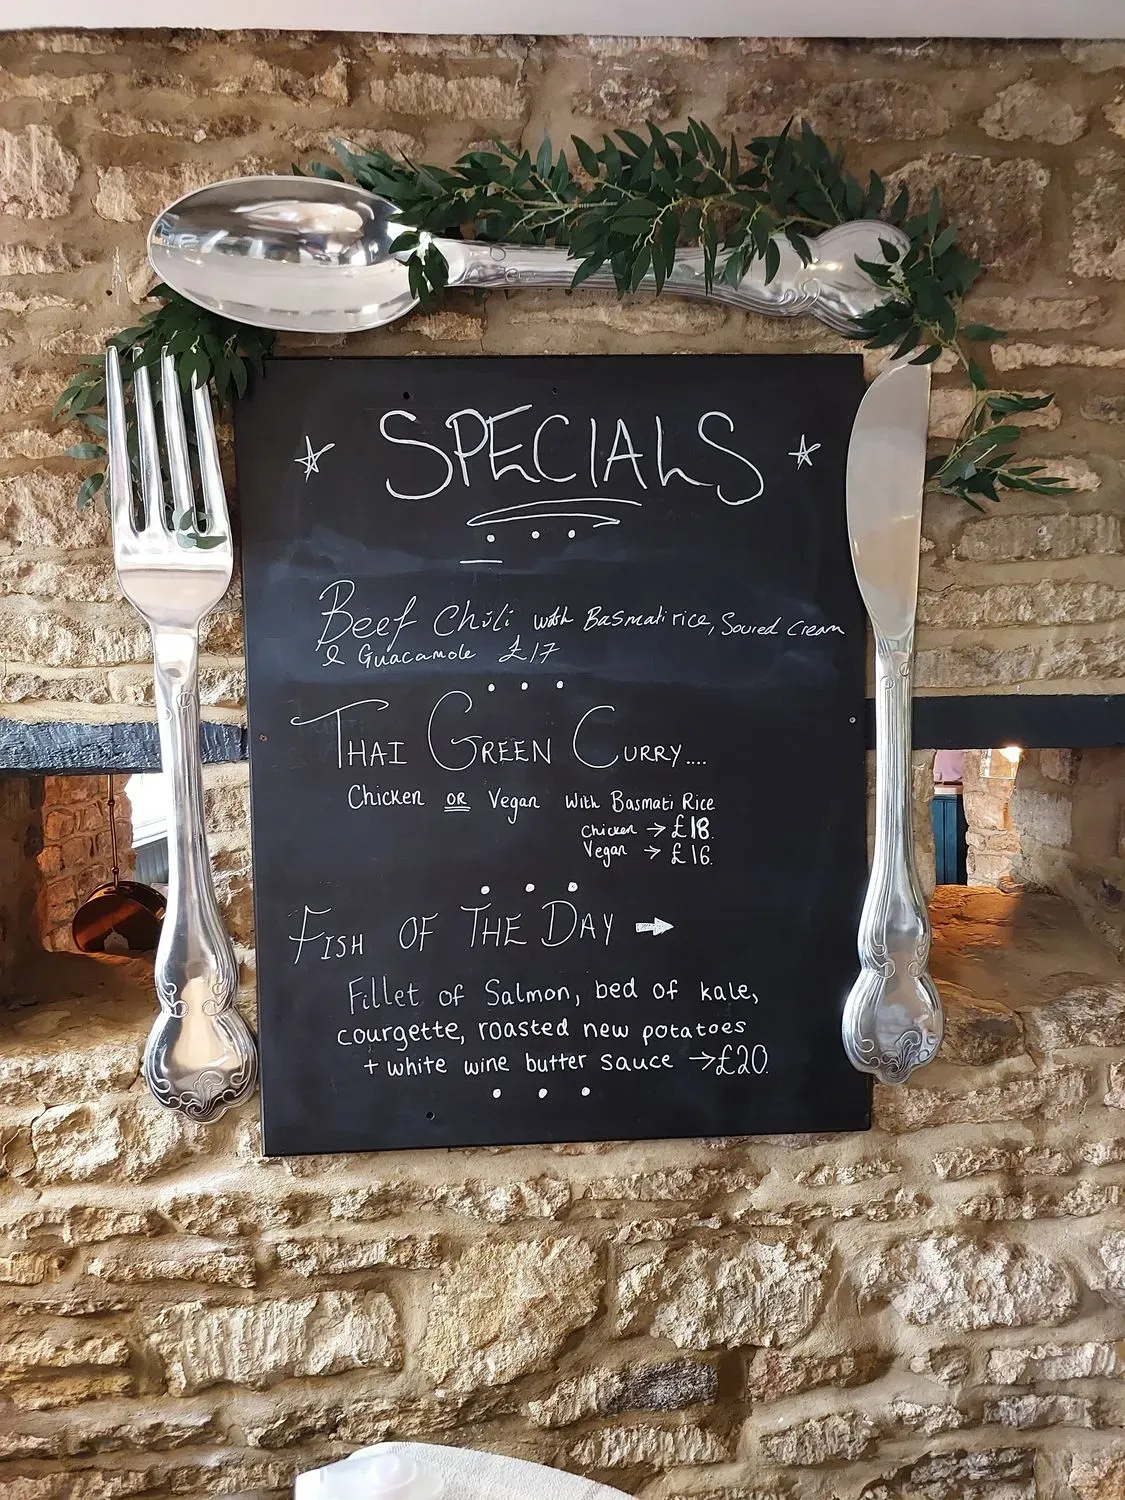 SPECIALS
Beef Chili with Basmati rice, Soured Cream
& Guacamole £17
THAI GREEN CURRY....
Chicken OR Vegan With Basmati Rice
Chicken → £18.
Vegan → £16.
FISH OF THE DAY →
Fillet of Salmon, bed of kale,
courgette, roasted new potatoes
+ white wine butter sauce → £20.